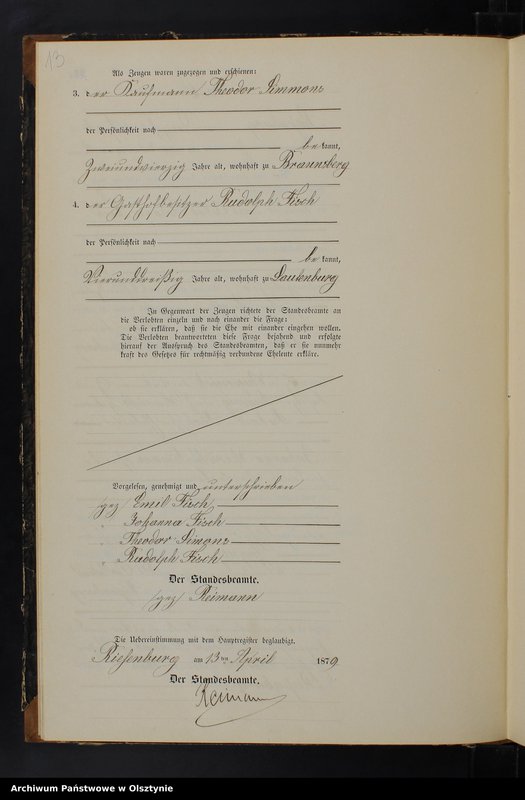 13
Als Zeugen waren zugezogen und erschienen:
3. der Kaufmann Theodor Simmons
der Persönlichkeit nach
be kannt,
Zweiundvierzig Jahre alt, wohnhaft zu Braunsberg
4. der Gasthofbesitzer Rudolph Fisch
der Persönlichkeit nach
be kannt,
Vierunddreißig Jahre alt, wohnhaft zu Lautenburg
In Gegenwart der Zeugen richtete der Standesbeamte an
die Verlobten einzeln und nach einander die Frage:
ob sie erklären, daß sie die Ehe mit einander eingehen wollen.
Die Verlobten beantworteten diese Frage bejahend und erfolgte
hierauf der Ausspruch des Standesbeamten, daß er sie nunmehr
kraft des Gesetzes für rechtmäßig verbundene Eheleute erkläre.
Vorgelesen, genehmigt und unterschrieben
gez Emil Fisch
" Johanna Fisch
" Theodor Simons
" Rudolph Fisch
Der Standesbeamte.
gez Reimann
Die Uebereinstimmung mit dem Hauptregister beglaubigt.
Riesenburg am 13ten April 1879
Der Standesbeamte.
Reimann
Archiwum Państwowe w Olsztynie